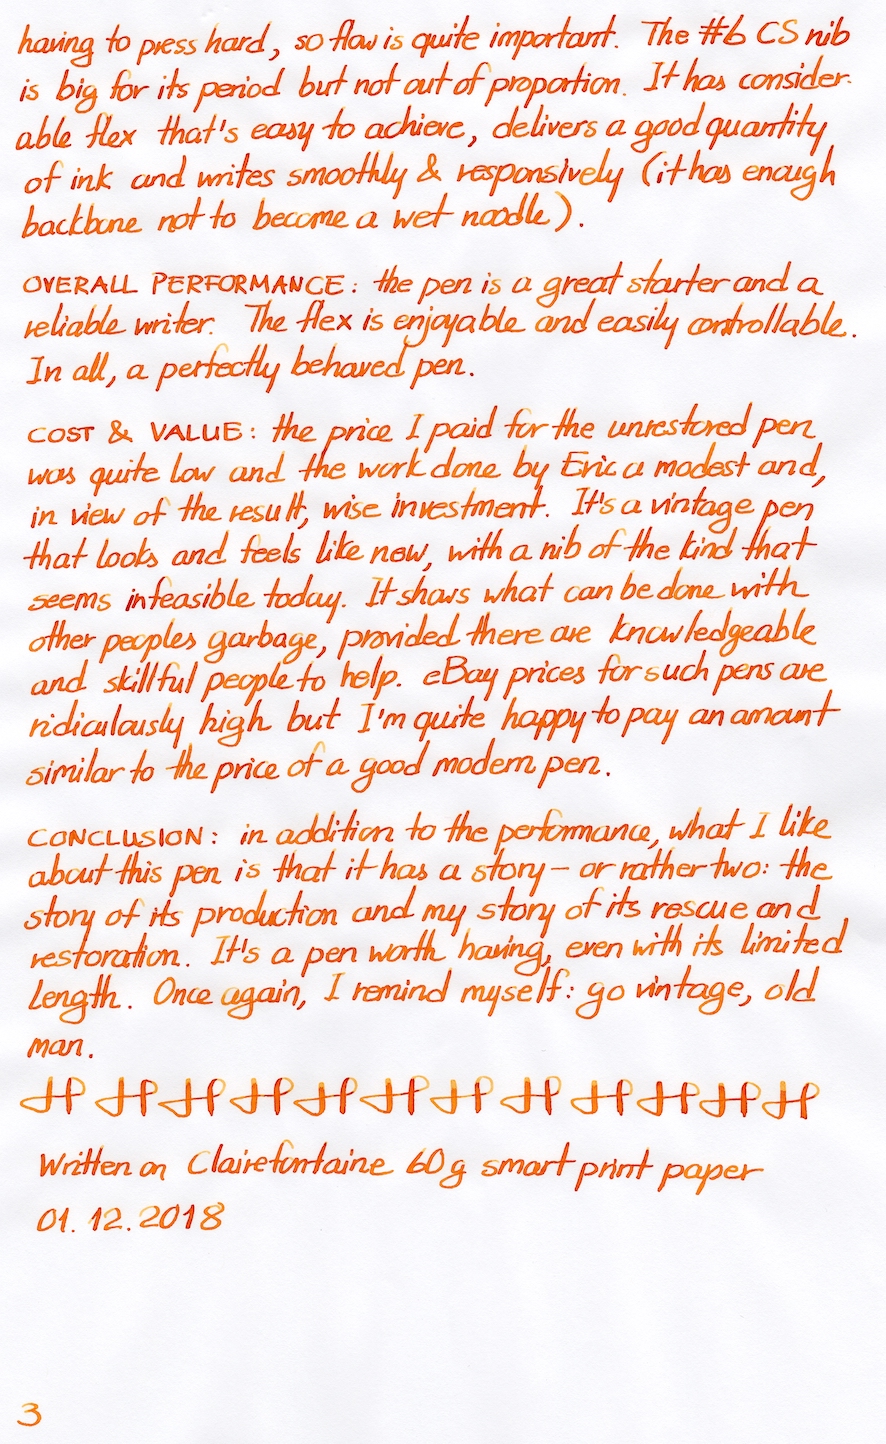 having to press hard, so flow is quite important. The #6 CS nib
is big for its period but not out of proportion. It has consider-
able flex that's easy to achieve, delivers a good quantity
of ink and writes smoothly & responsively (it has enough
backbone not to become a wet noodle).
OVERALL PERFORMANCE: the pen is a great starter and a
reliable writer. The flex is enjoyable and easily controllable.
In all, a perfectly behaved pen.
COST & VALUE: the price I paid for the unrestored pen
was quite low and the work done by Eric a modest and,
in view of the result, wise investment. It's a vintage pen
that looks and feels like new, with a nib of the kind that
seems infeasible today. It shows what can be done with
other peoples garbage, provided there are knowledgeable
and skillful people to help. eBay prices for such pens are
ridiculously high but I'm quite happy to pay an amount
similar to the price of a good modern pen.
CONCLUSION: in addition to the performance, what I like
about this pen is that it has a story – or rather two: the
story of its production and my story of its rescue and
restoration. It's a pen worth having, even with its limited
length. Once again, I remind myself: go vintage, old
man.
Written on Clairefontaine 60g smart print paper
01.12.2018
3